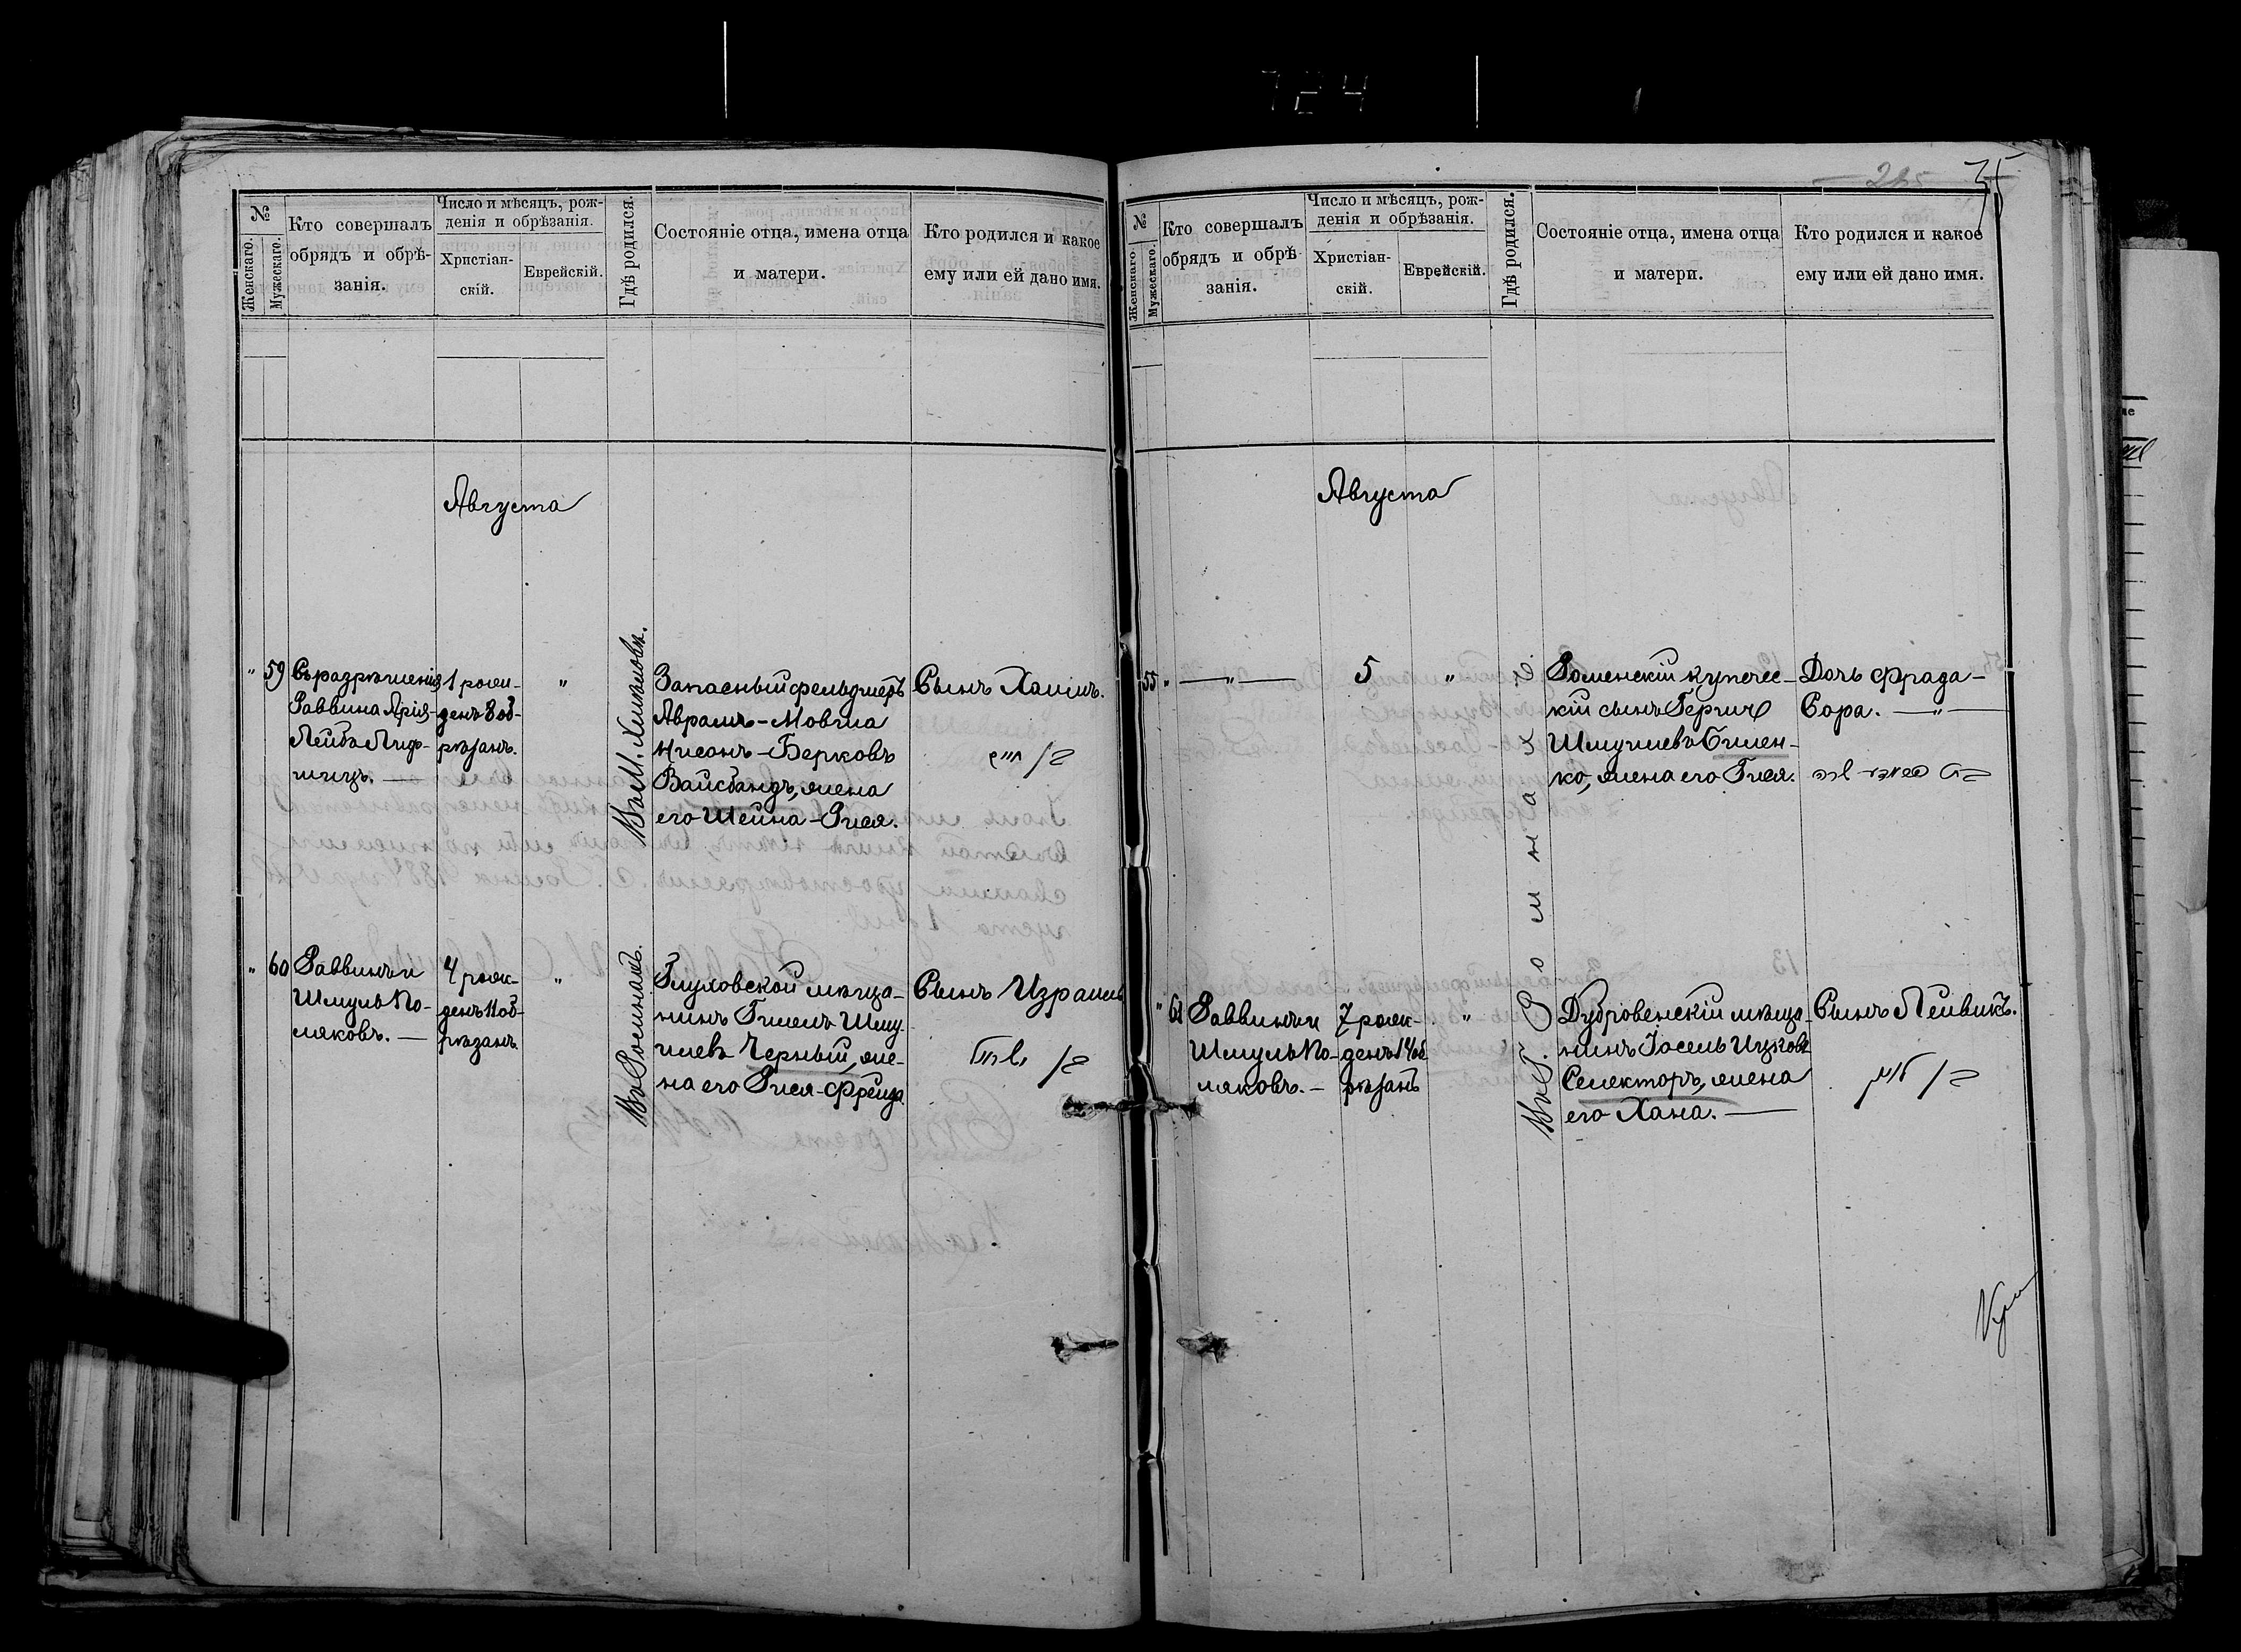 724
225
35
№
Женскаго.
Мужескаго.
Кто совершалъ
обрядъ и обрѣ-
занія.
Число и мѣсяцъ, рож-
денія и обрѣзанія.
Христіан-
скій.
Еврейскій.
Гдѣ родился.
Состояніе отца, имена отца
и матери.
Кто родился и какое
ему или ей дано имя.
Августа
" 59
Съ разрѣшенія
Раввина Арія-
Лейба Лиф-
шицъ. —
1 рож-
денъ 8 об-
рѣзанъ.
"
Въ М. Хмѣловѣ.
Запасный фельдшеръ
Абрамъ-Мовша
Нисонъ-Берковъ
Вайсбандъ, жена
его Шейна-Рися.
Сынъ Хаимъ.
בן חיים
" 60
Раввинъ и
Шмуль По-
ляковъ. —
4 рож-
денъ 11 об-
рѣзанъ.
"
Въ Роменахъ.
Глуховской мѣща-
нинъ Гилелъ Шму-
илевъ Черный, же-
на его Рися-Фрейда.
Сынъ Израиль
בן ישראל
№
Женскаго.
Мужескаго.
Кто совершалъ
обрядъ и обрѣ-
занія.
Число и мѣсяцъ, рож-
денія и обрѣзанія.
Христіан-
скій.
Еврейскій.
Гдѣ родился.
Состояніе отца, имена отца
и матери.
Кто родился и какое
ему или ей дано имя.
Августа
55 "
— " —
5
"
Въ Г. Ромнахъ.
Роменскій купечес-
кій сынъ Гершъ
Шмуилевъ Симен-
ко, жена его Гися.
Дочь Фрада-
Сора. — " —
בת פראדא שרה
" 61
Раввинъ и
Шмуль По-
ляковъ. —
7 рож-
денъ 14 об
рѣзанъ
"
Дубровенскій мѣща-
нинъ Іосель Ицковъ
Селекторъ, жена
его Хана. —
Сынъ Лейвикъ.
בן לוי